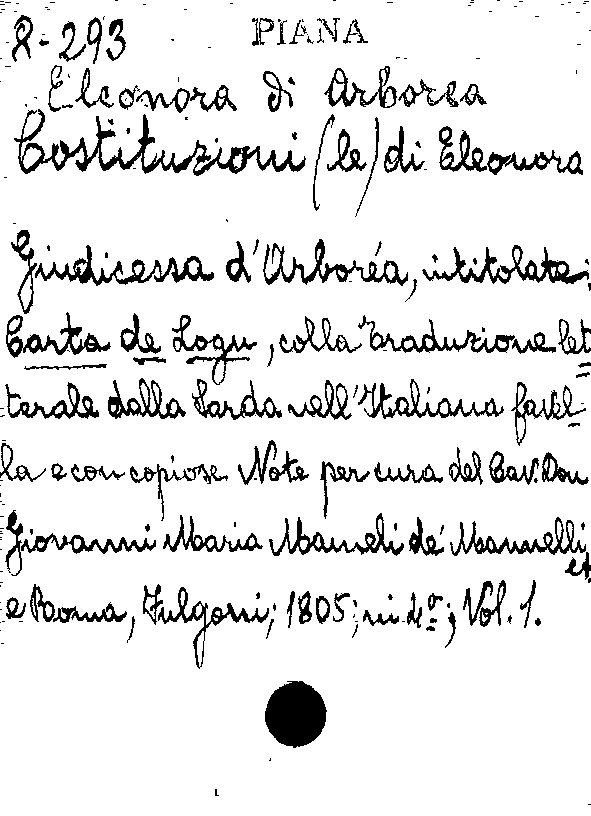 R-293 PIANA
Eleonora di Arborea
Costituzioni (le) di Eleonora
Giudicessa d'Arboréa, intitolate:
Carta de Logu, colla Traduzione let
terale dalla Sarda nell'Italiana favel-
la e con copiose Note per cura del Cav. Don
Giovanni Maria Mameli de' Mannelli
et
e Roma, Fulgoni; 1805; in 4º; Vol. 1.